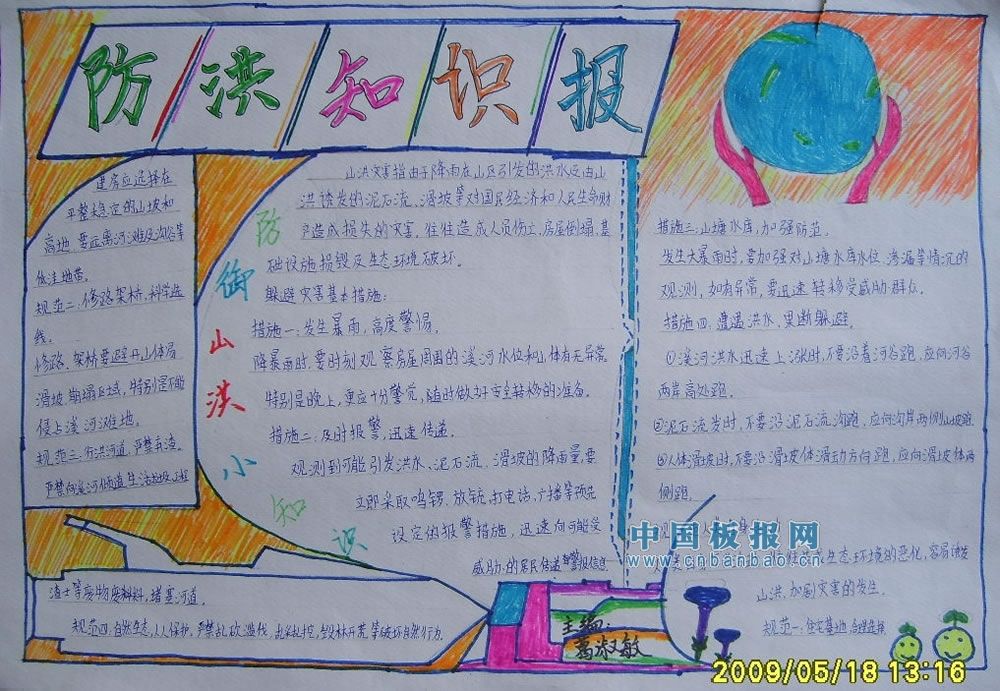 防洪知识报
防御山洪小知识
山洪灾害指由于降雨在山区引发的洪水及由山
洪诱发的泥石流、滑坡等对国民经济和人民生命财
产造成损失的灾害,往往造成人员伤亡,房屋倒塌,基
础设施损毁及生态环境破坏。
躲避灾害基本措施:
措施一:发生暴雨,高度警惕。
降暴雨时,要时刻观察房屋周围的溪河水位和山体有无异常。
特别是晚上,更应十分警觉,随时做好安全转移的准备。
措施二:及时报警,迅速传递。
观测到可能引发洪水、泥石流、滑坡的降雨量要
立即采取鸣锣、放铳、打电话、广播等预先
设定的报警措施,迅速向可能受
威胁的居民传递 警报信息
措施三:山塘水库,加强防范。
发生大暴雨时,要加强对山塘水库水位、渗漏等情况的
观测,如有异常,要迅速转移受威胁群众。
措施四:遭遇洪水,果断躲避。
①溪河洪水迅速上涨时,不要沿着河谷跑,应向河谷
两岸高处跑。
②泥石流发时,不要沿泥石流沟跑,应向沟岸两侧山坡跑
③人体滑坡时,不要沿滑坡体滑动方向跑,应向滑坡体两
侧跑。
生态环境的恶化,容易诱发
山洪,加剧灾害的发生。
规范一:住宅基地,合理选择
建房应选择在
平整稳定的山坡和
高地,要远离河滩及沟谷等
低洼地带。
规范二:修路架桥,科学选
线。
修路、架桥要避开山体易
滑坡、崩塌区域,特别是不能
侵占溪河滩地。
规范三:行洪河道,严禁弃渣。
严禁向溪河倾道生活垃圾、工程
渣土等废物废料料,堵塞河道。
规范四:自然生态,人人保护,严禁乱砍滥伐、乱采乱挖、毁林开荒等破坏自然行为.
主编:
葛淑敏
中国板报网
www.cnbanbao.cn
2009/05/18 13:16